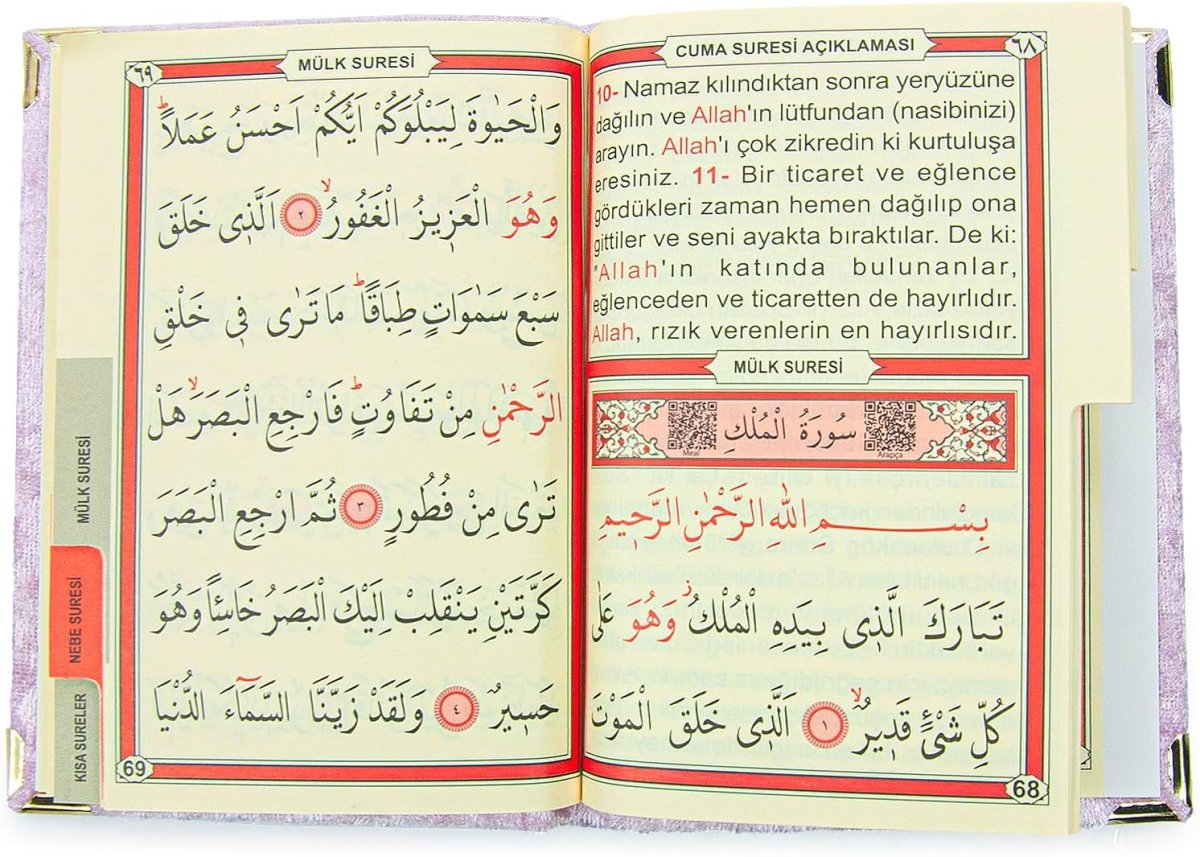 CUMA SURESİ AÇIKLAMASI
٦٨
10- Namaz kılındıktan sonra yeryüzüne
dağılın ve Allah'ın lütfundan (nasibinizi)
arayın. Allah'ı çok zikredin ki kurtuluşa
eresiniz. 11- Bir ticaret ve eğlence
gördükleri zaman hemen dağılıp ona
gittiler ve seni ayakta bıraktılar. De ki:
"Allah'ın katında bulunanlar,
eğlenceden ve ticaretten de hayırlıdır.
Allah, rızık verenlerin en hayırlısıdır.
MÜLK SURESİ
سُورَةُ الْمُلْكِ
Meal
Arapça
بِسْمِ اللّٰهِ الرَّحْمٰنِ الرَّحٖيمِ
تَبَارَكَ الَّذٖى بِيَدِهِ الْمُلْكُ ز وَهُوَ عَلٰى
كُلِّ شَىْءٍ قَدٖيرٌ ۙ ١ اَلَّذٖى خَلَقَ الْمَوْتَ
68
٦٩
MÜLK SURESİ
وَالْحَيٰوةَ لِيَبْلُوَكُمْ اَيُّكُمْ اَحْسَنُ عَمَلاً ط
وَهُوَ الْعَزٖيزُ الْغَفُورُ ۙ ٢ اَلَّذٖى خَلَقَ
سَبْعَ سَمٰوَاتٍ طِبَاقًا ط مَا تَرٰى فٖى خَلْقِ
الرَّحْمٰنِ مِنْ تَفَاوُتٍ ط فَارْجِعِ الْبَصَرَ ۙ هَلْ
تَرٰى مِنْ فُطُورٍ ٣ ثُمَّ ارْجِعِ الْبَصَرَ
كَرَّتَيْنِ يَنْقَلِبْ اِلَيْكَ الْبَصَرُ خَاسِئًا وَهُوَ
حَسٖيرٌ ٤ وَلَقَدْ زَيَّنَّا السَّمَٓاءَ الدُّنْيَا
69
MÜLK SURESİ
NEBE SURESİ
KISA SURELER